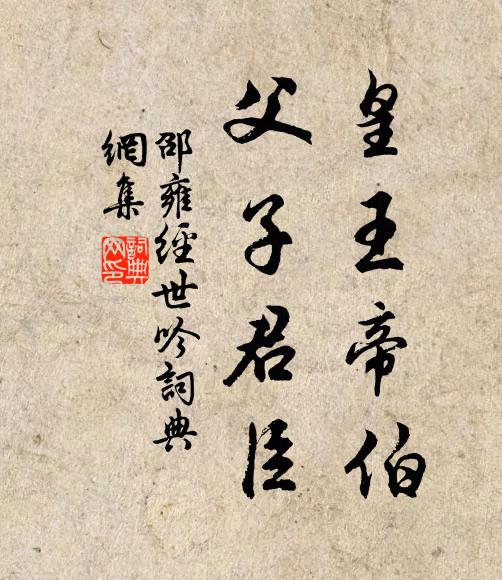 皇王帝伯
父子君臣
邵雍經世吟詞典
網集
詞典
网印